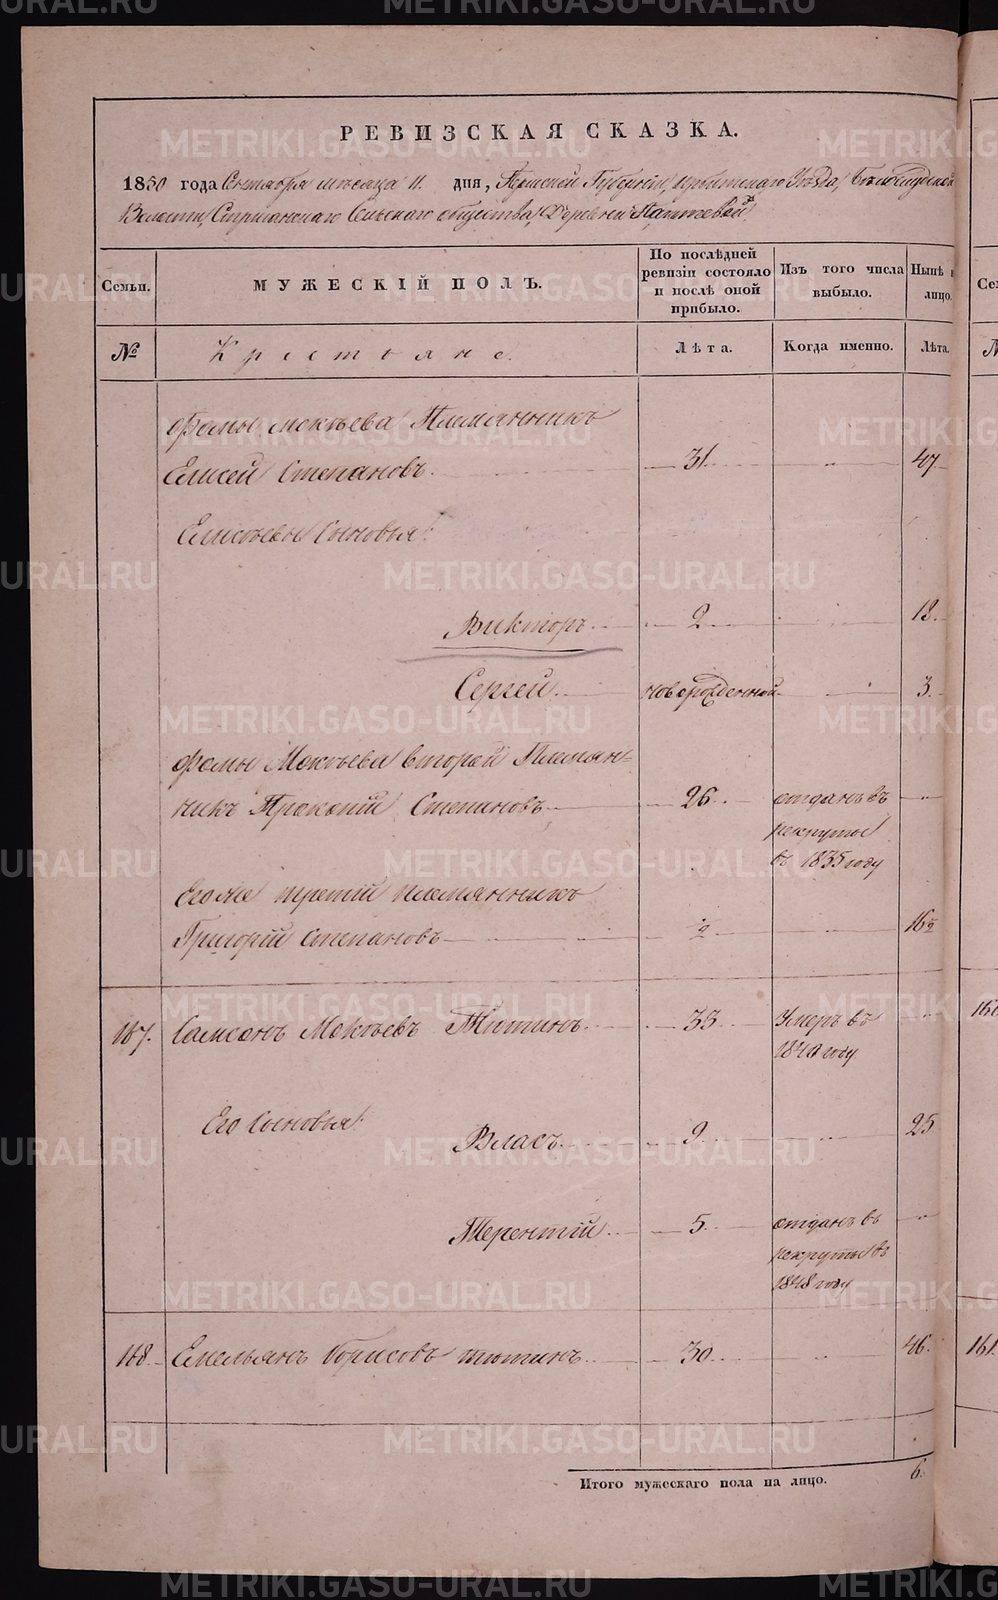 РЕВИЗСКАЯ СКАЗКА.
1850 года Сентября месяца 11. дня, Пермской Губернии, Ирбитскаго Уѣзда, Белослудской
Волости, Стриганскаго Сельскаго общества, Деревни
Семьи.
МУЖЕСКІЙ ПОЛЪ.
По послѣдней ревизіи состояло и послѣ оной прибыло.
Изъ того числа выбыло.
Нынѣ
лицо.
№
Крестьяне.
Лѣта.
Когда именно.
Лѣта.
Фомы Мокѣева Племянникъ
Елисей Степановъ 31. " 47
Елисѣевы Сыновья:
Викторъ 2 " 18.
Сергей новорожденной " 3.
Фомы Мокѣева второй Племян-
никъ Прокопій Степановъ 26. отданъ въ "
рекруты
въ 1835 году
Его же третій племянникъ
Григорій Степановъ ½ 16½
167. Самсонъ Мокѣевъ 33 Умеръ въ "
1840 году
Его Сыновья:
Власъ 9. 25
Терентій 5. отданъ въ "
рекруты въ
1848 году
168 Емельянъ Борисовъ 30 46.
Итого мужескаго пола на лицо. 6.
Се
№
161.
METRIKI.GASO-URAL.RU